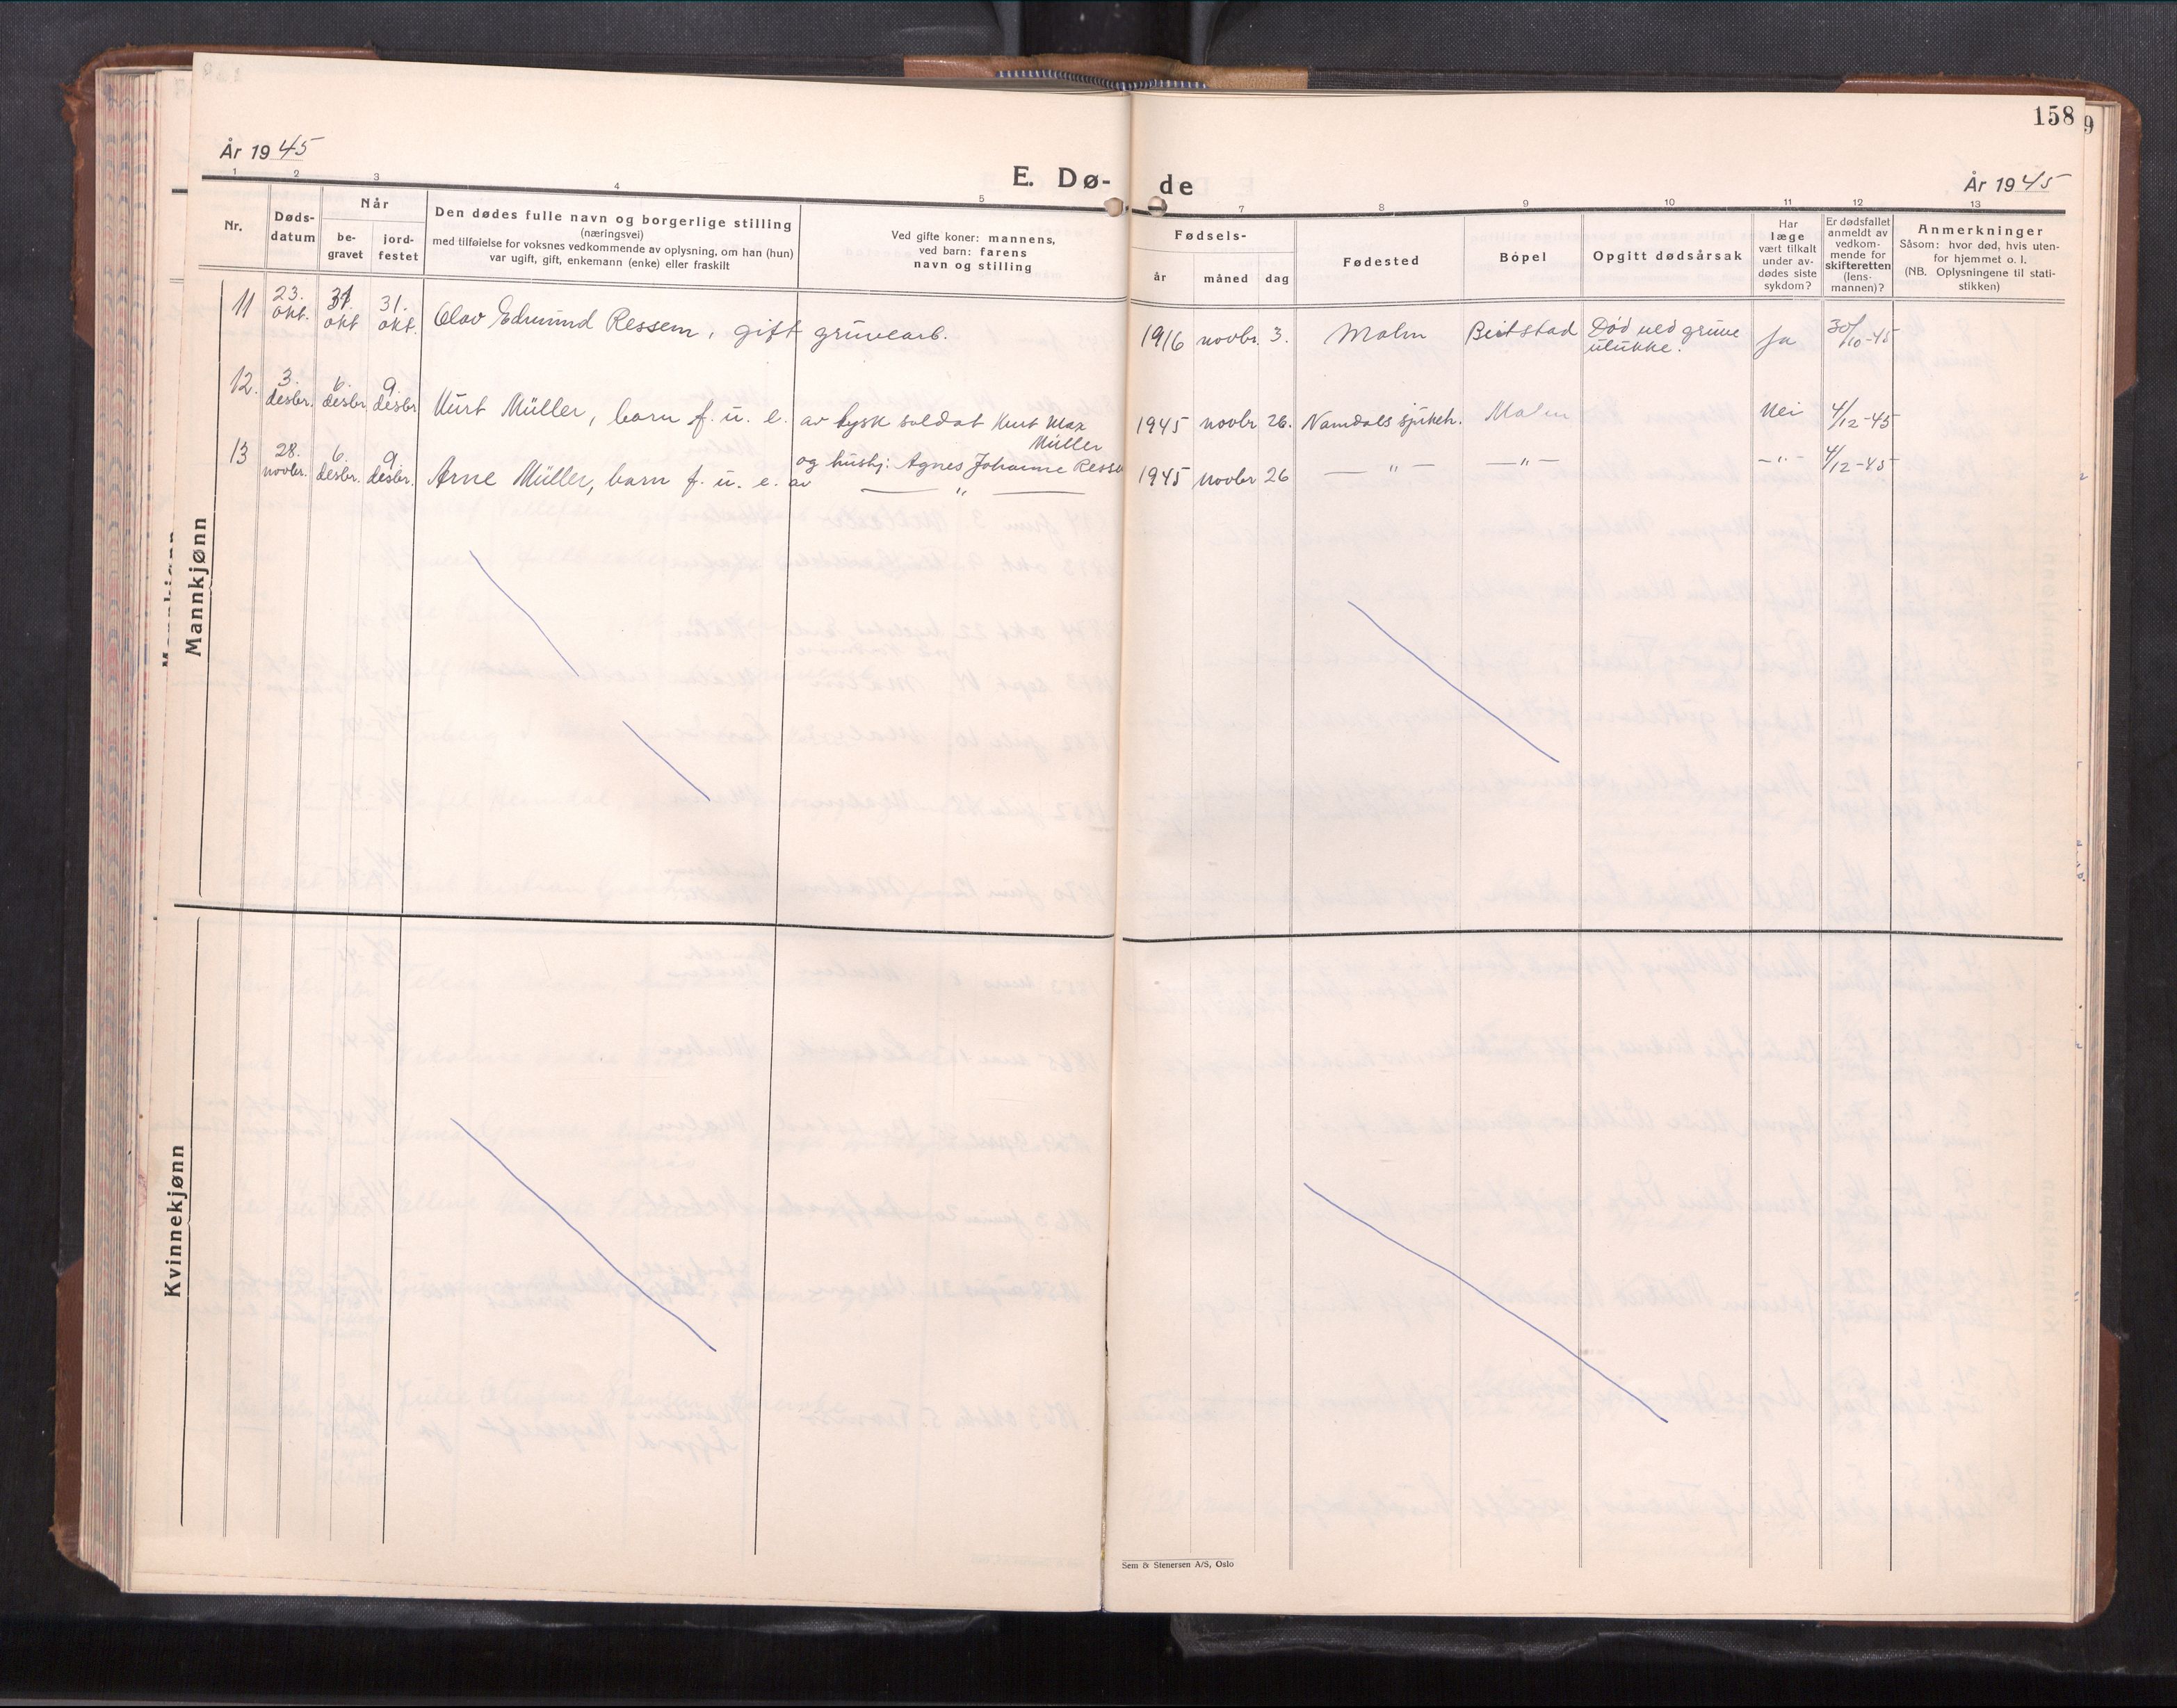 158
9
År 1945
År 1945
E. Dø-
de
1 2 3 4 5 7 8 9 10 11 12 13
Nr.
Døds-
datum
Når
be-
gravet
jord-
festet
Den dødes fulle navn og borgerlige stilling
(næringsvei)
med tilføielse for voksnes vedkommende av oplysning, om han (hun)
var ugift, gift, enkemann (enke) eller fraskilt
Ved gifte koner: mannens,
ved barn: farens
navn og stilling
Fødsels-
år måned dag
Fødested
Bopel
Opgitt dødsårsak
Har
læge
vært tilkalt
under av-
dødes siste
sykdom?
Er dødsfallet
anmeldt av
vedkom-
mende for
skifteretten
(lens-
mannen)?
Anmerkninger
Såsom: hvor død, hvis uten-
for hjemmet o. l.
(NB. Oplysningene til stati-
stikken)
Mannkjønn
11 23. okt. 31. okt 31. okt. Olav Edmund Ressem, gift gruvearb. 1916 novbr. 3. Malm Beitstad Død ved gruve
ulukke. Ja 30/10-45
12. 3. desbr. 6. desbr 9. desbr Kurt Müller, barn f. u. e. av tysk soldat Kurt Max
Müller 1945 novbr 26. Namdals sjukeh. Malm Nei 4/12-45
og hushj. Agnes Johanne
13 28. novbr. 6. desbr. 9. desbr. Arne Müller, barn f. u. e. av — " — 1945 novbr 26 — " — — " — — " — 4/12-45
Kvinnekjønn
Sem & Stenersen A/S, Oslo